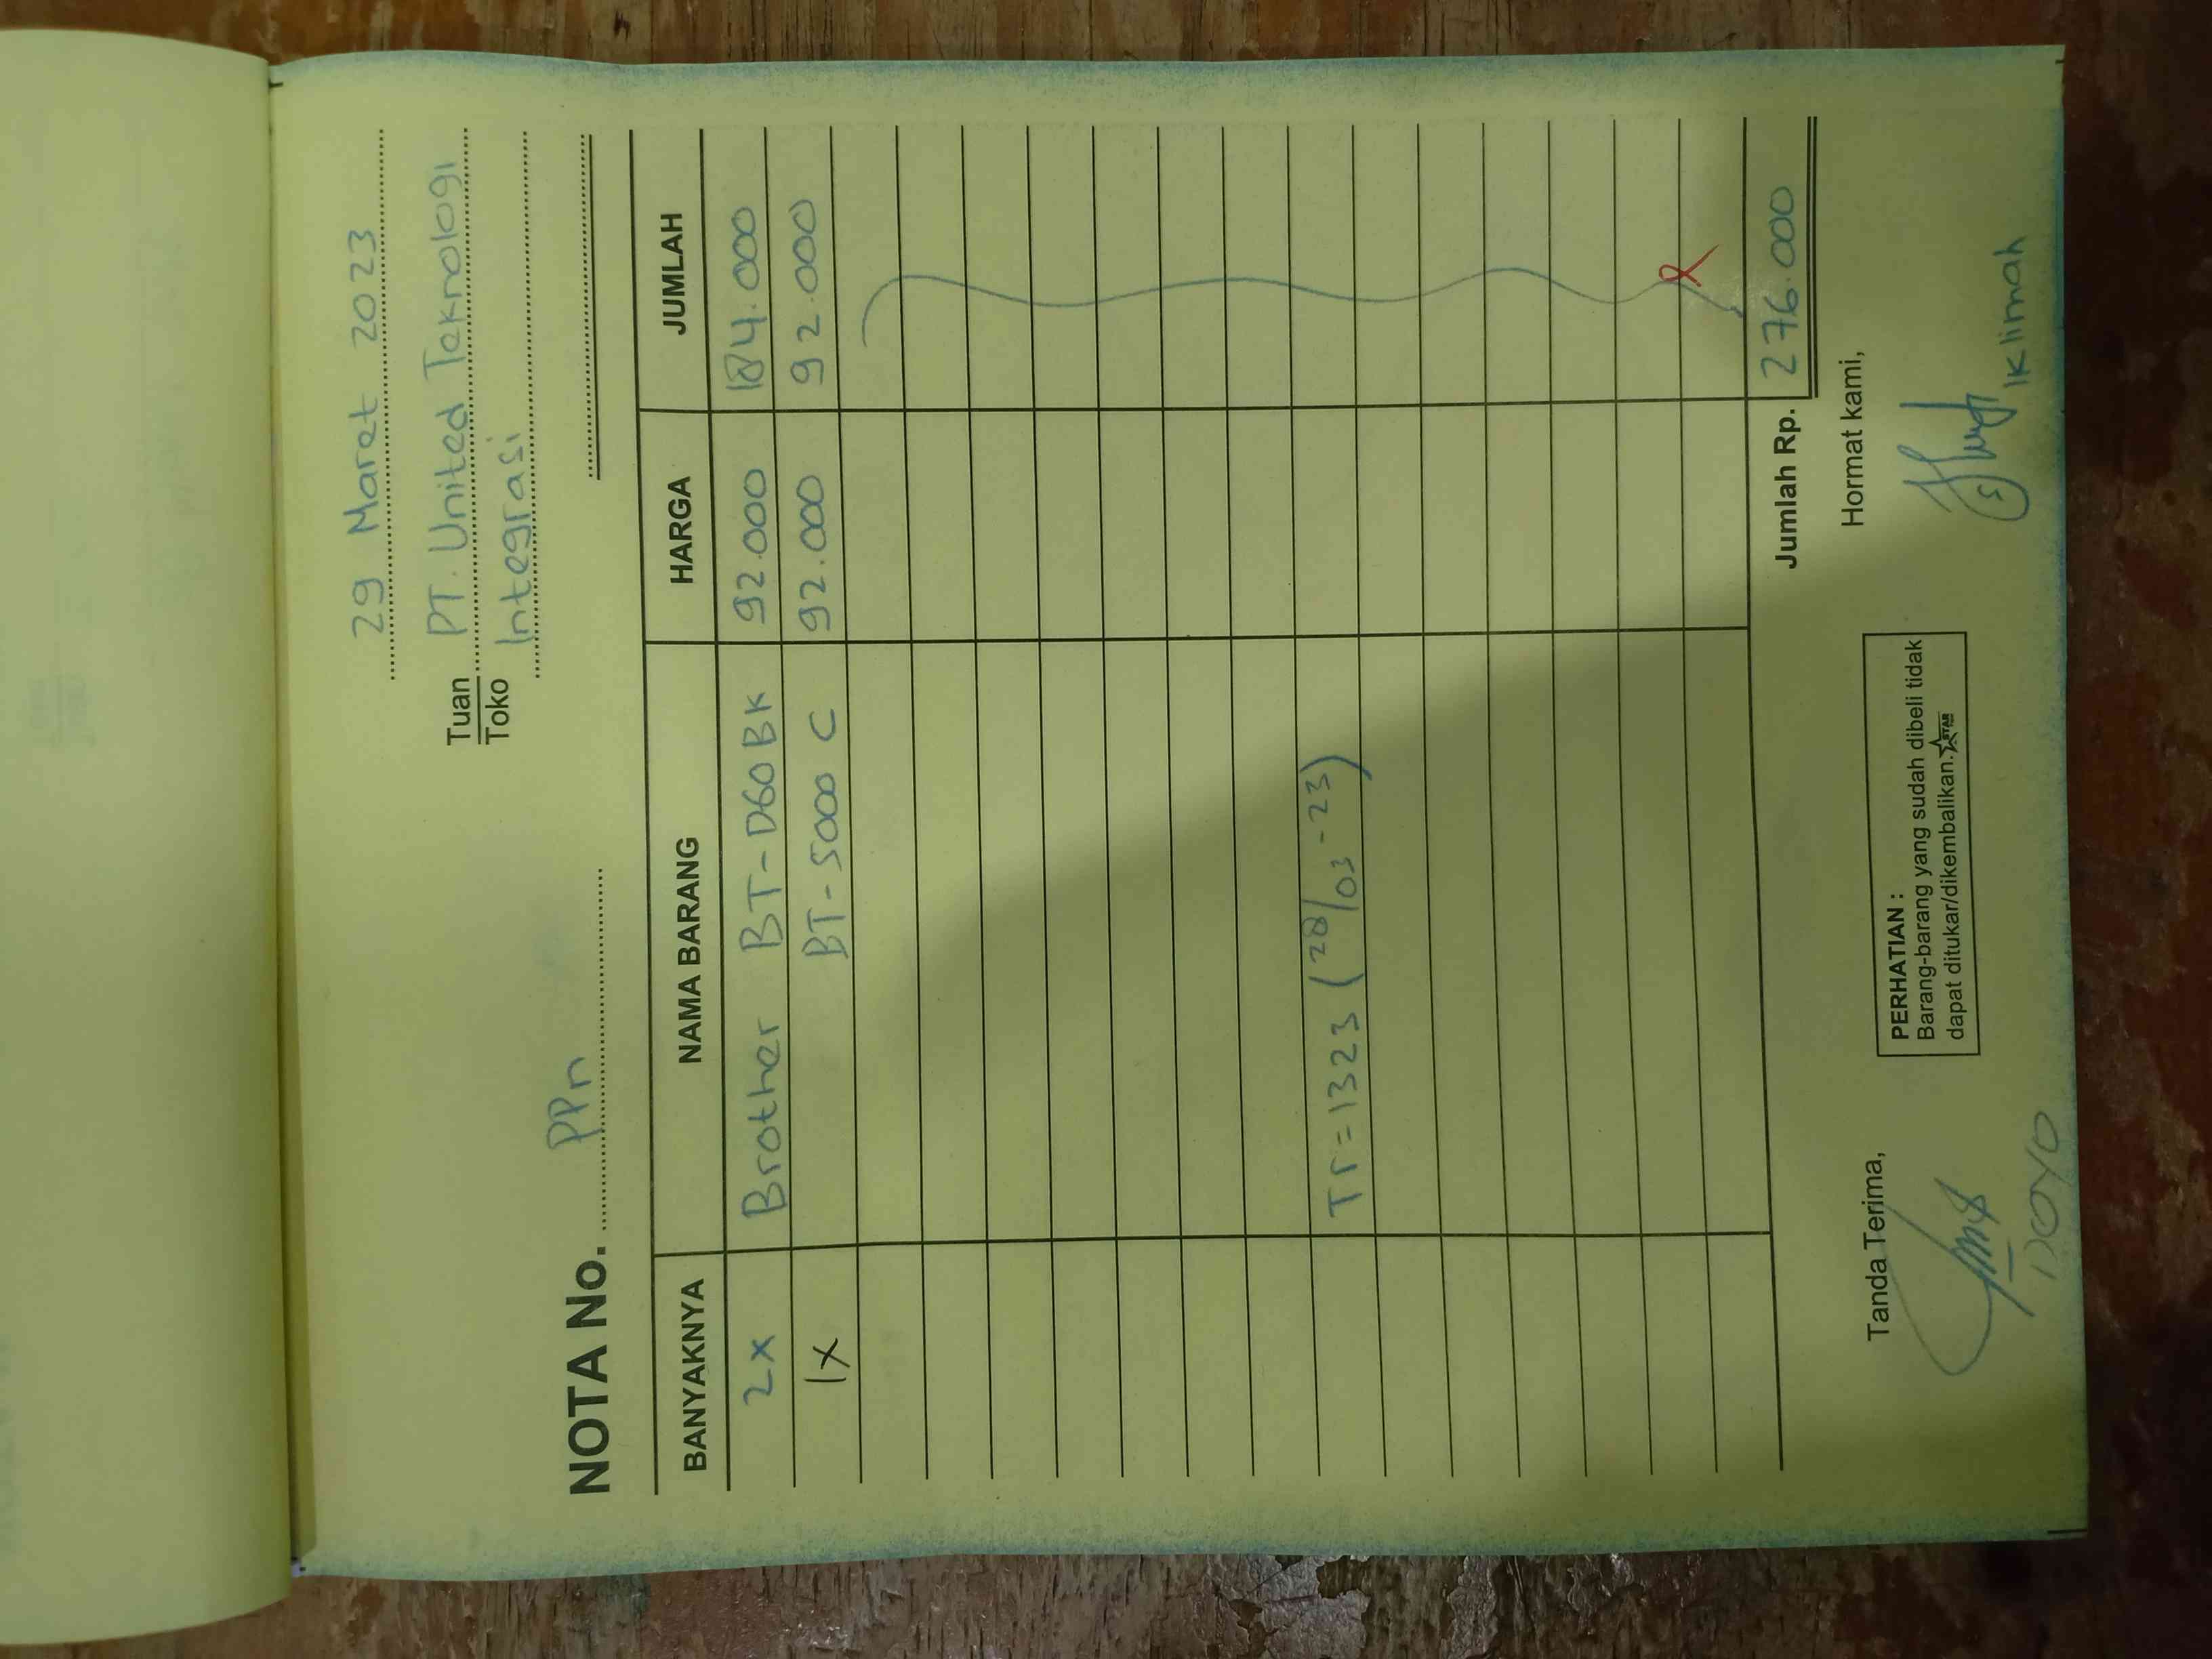 29 Maret 2023
Tuan PT. United Teknologi
Toko Integrasi
NOTA No. PPn
BANYAKNYA NAMA BARANG HARGA JUMLAH
2x Brother BT-D60 BK 92.000 184.000
1x BT-5000 C 92.000 92.000
Tr=1323 (28/03-23)
Jumlah Rp. 276.000
Tanda Terima, Hormat kami,
PERHATIAN :
Barang-barang yang sudah dibeli tidak
dapat ditukar/dikembalikan. STAR
DOYO Iklimah